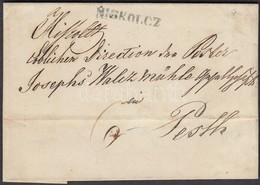 MISKOLCZ
Löblichen Direction der Pester
Josephs Walzmühl Gesellschaft
in
Pesth